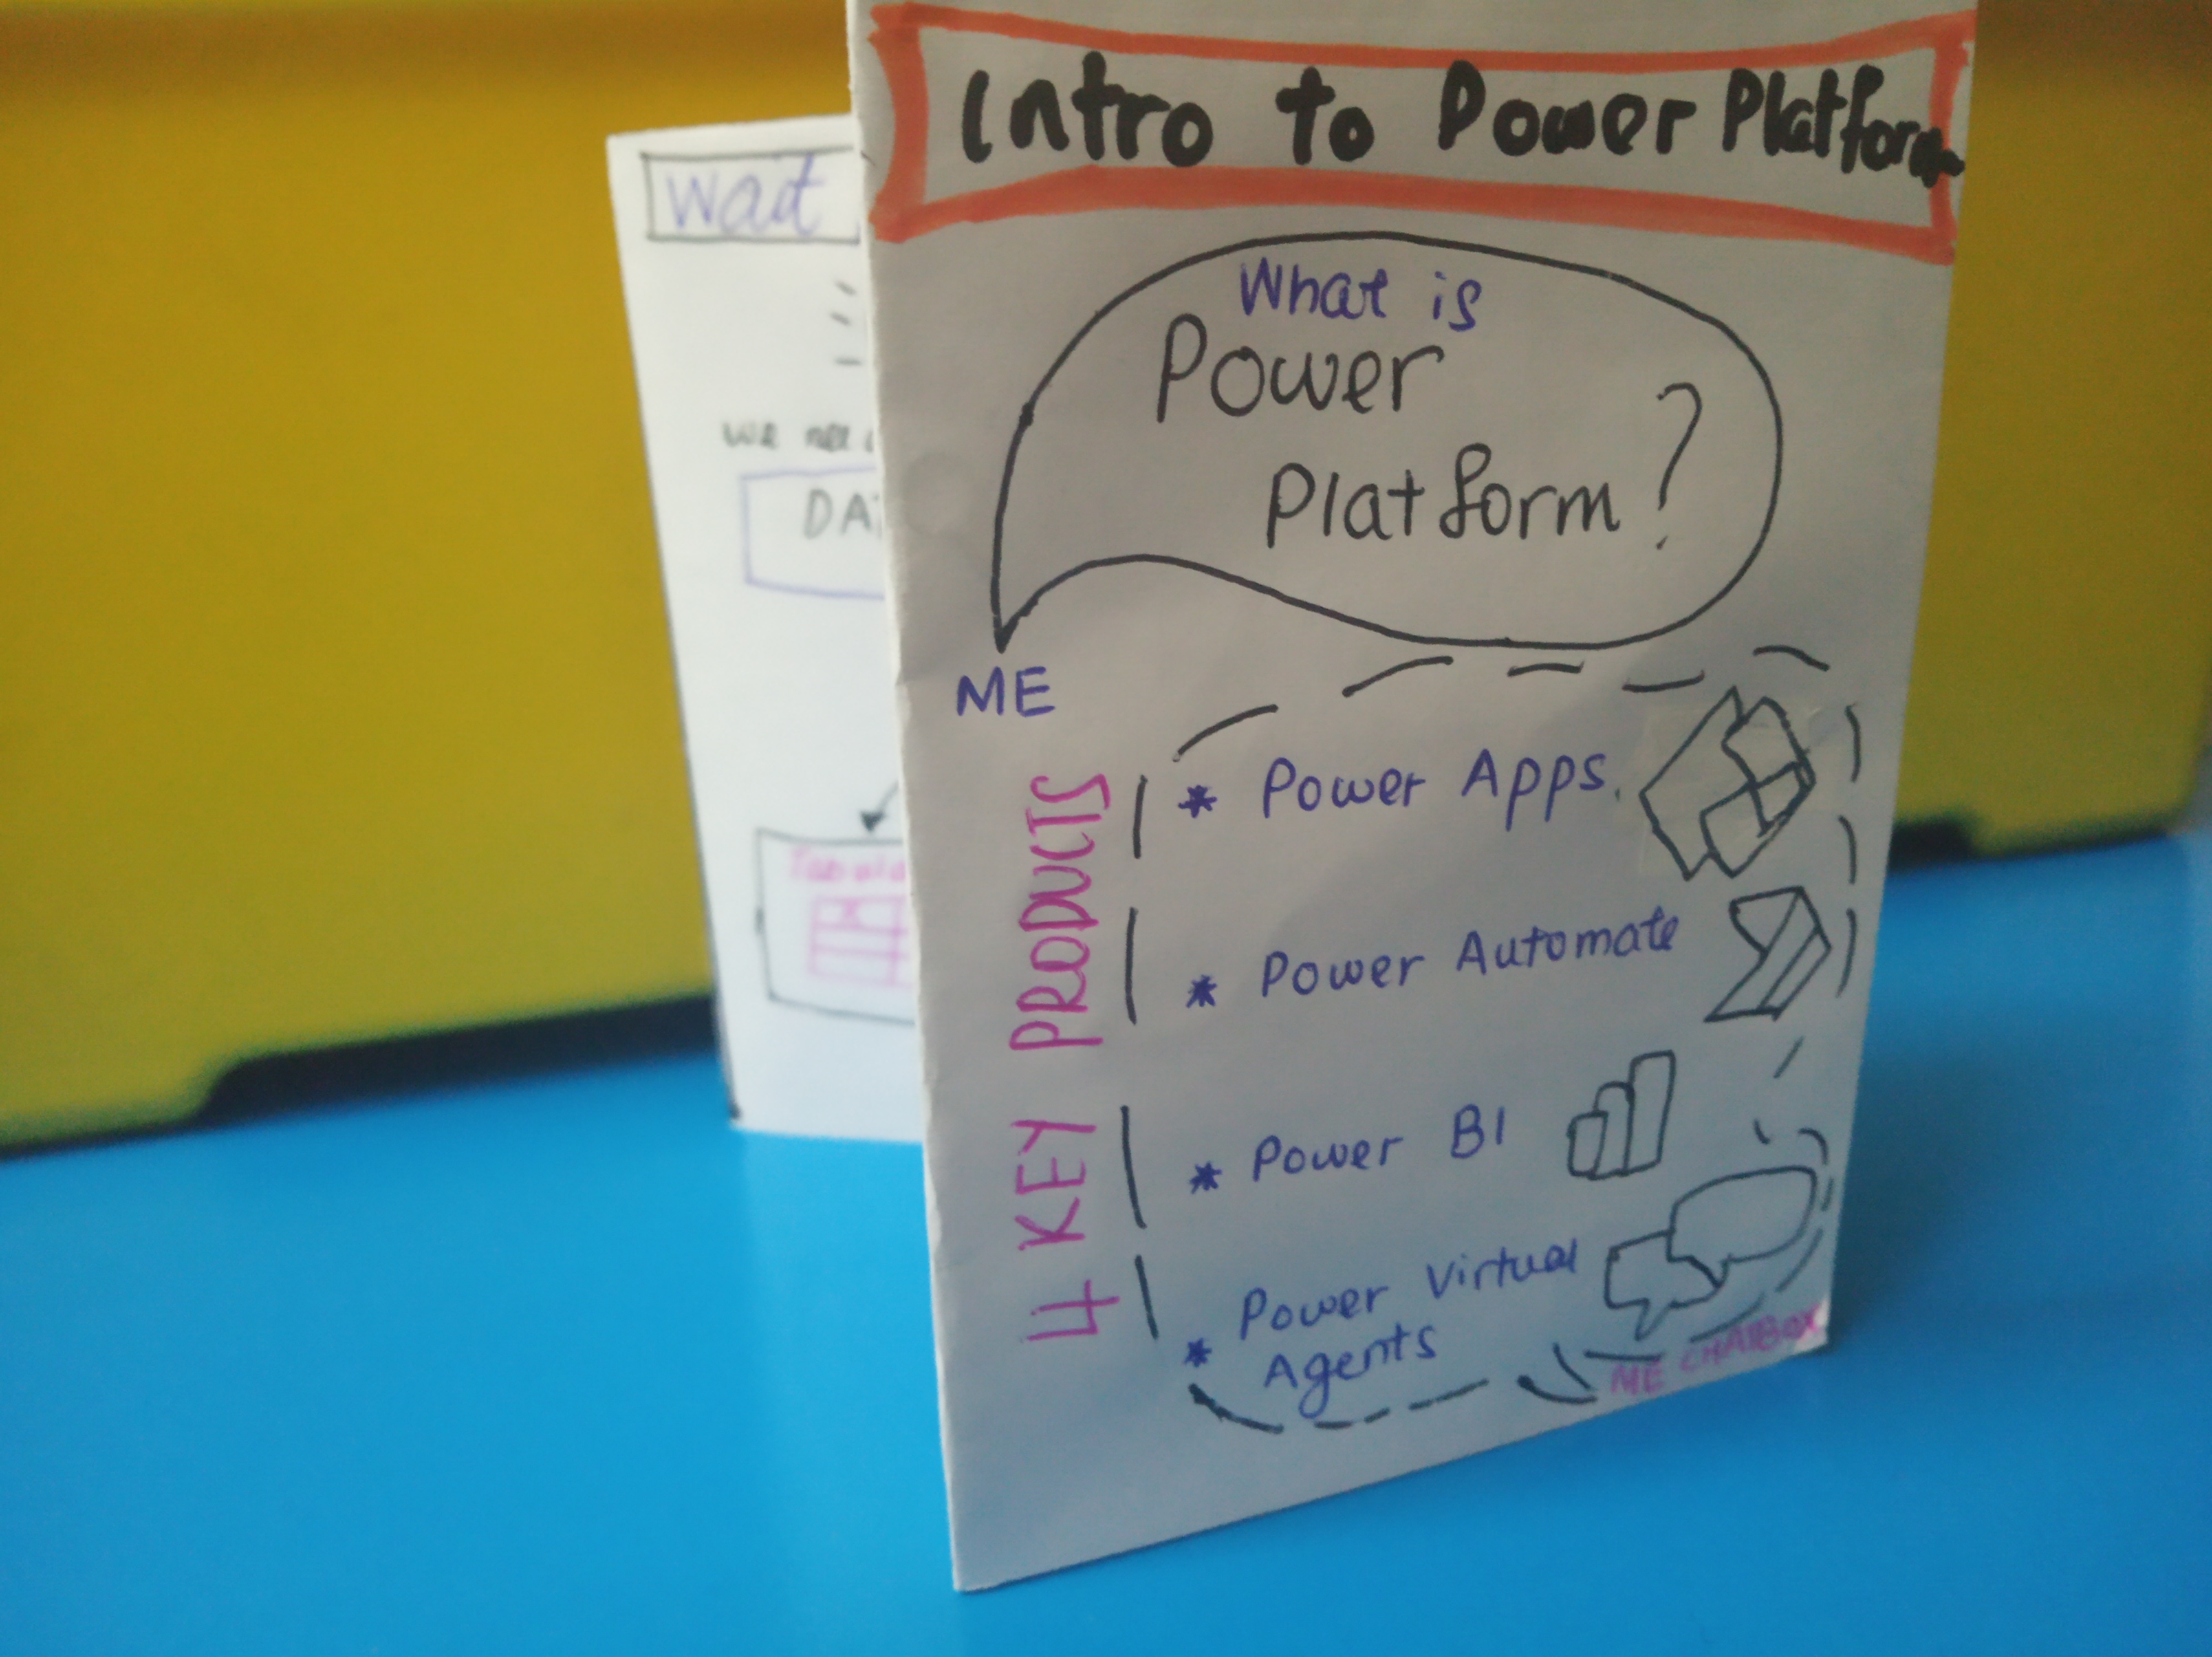 Intro to Power Platform
What is
Power
Platform?
ME
4 KEY PRODUCTS
* Power Apps.
* Power Automate
* Power BI
* Power Virtual
Agents
ME CHATBOX
Wait
we